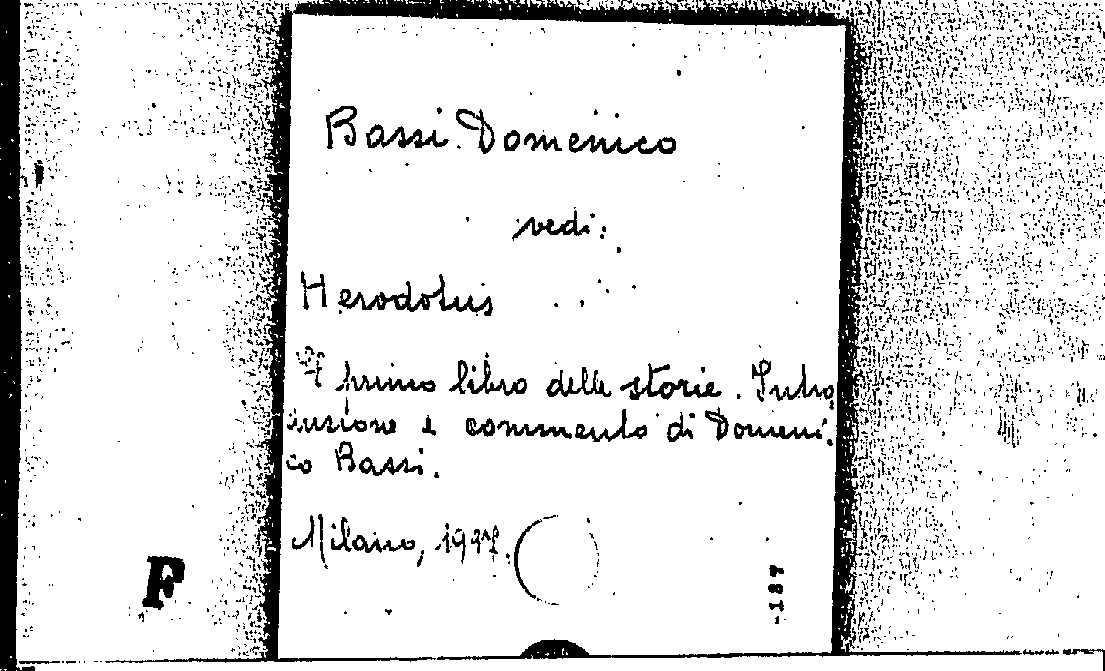 Bassi Domenico
vedi:
Herodotus
primo libro delle storie. Intro,
duzione e commento di Domeni.
co Bassi.
Milano,
F
-187